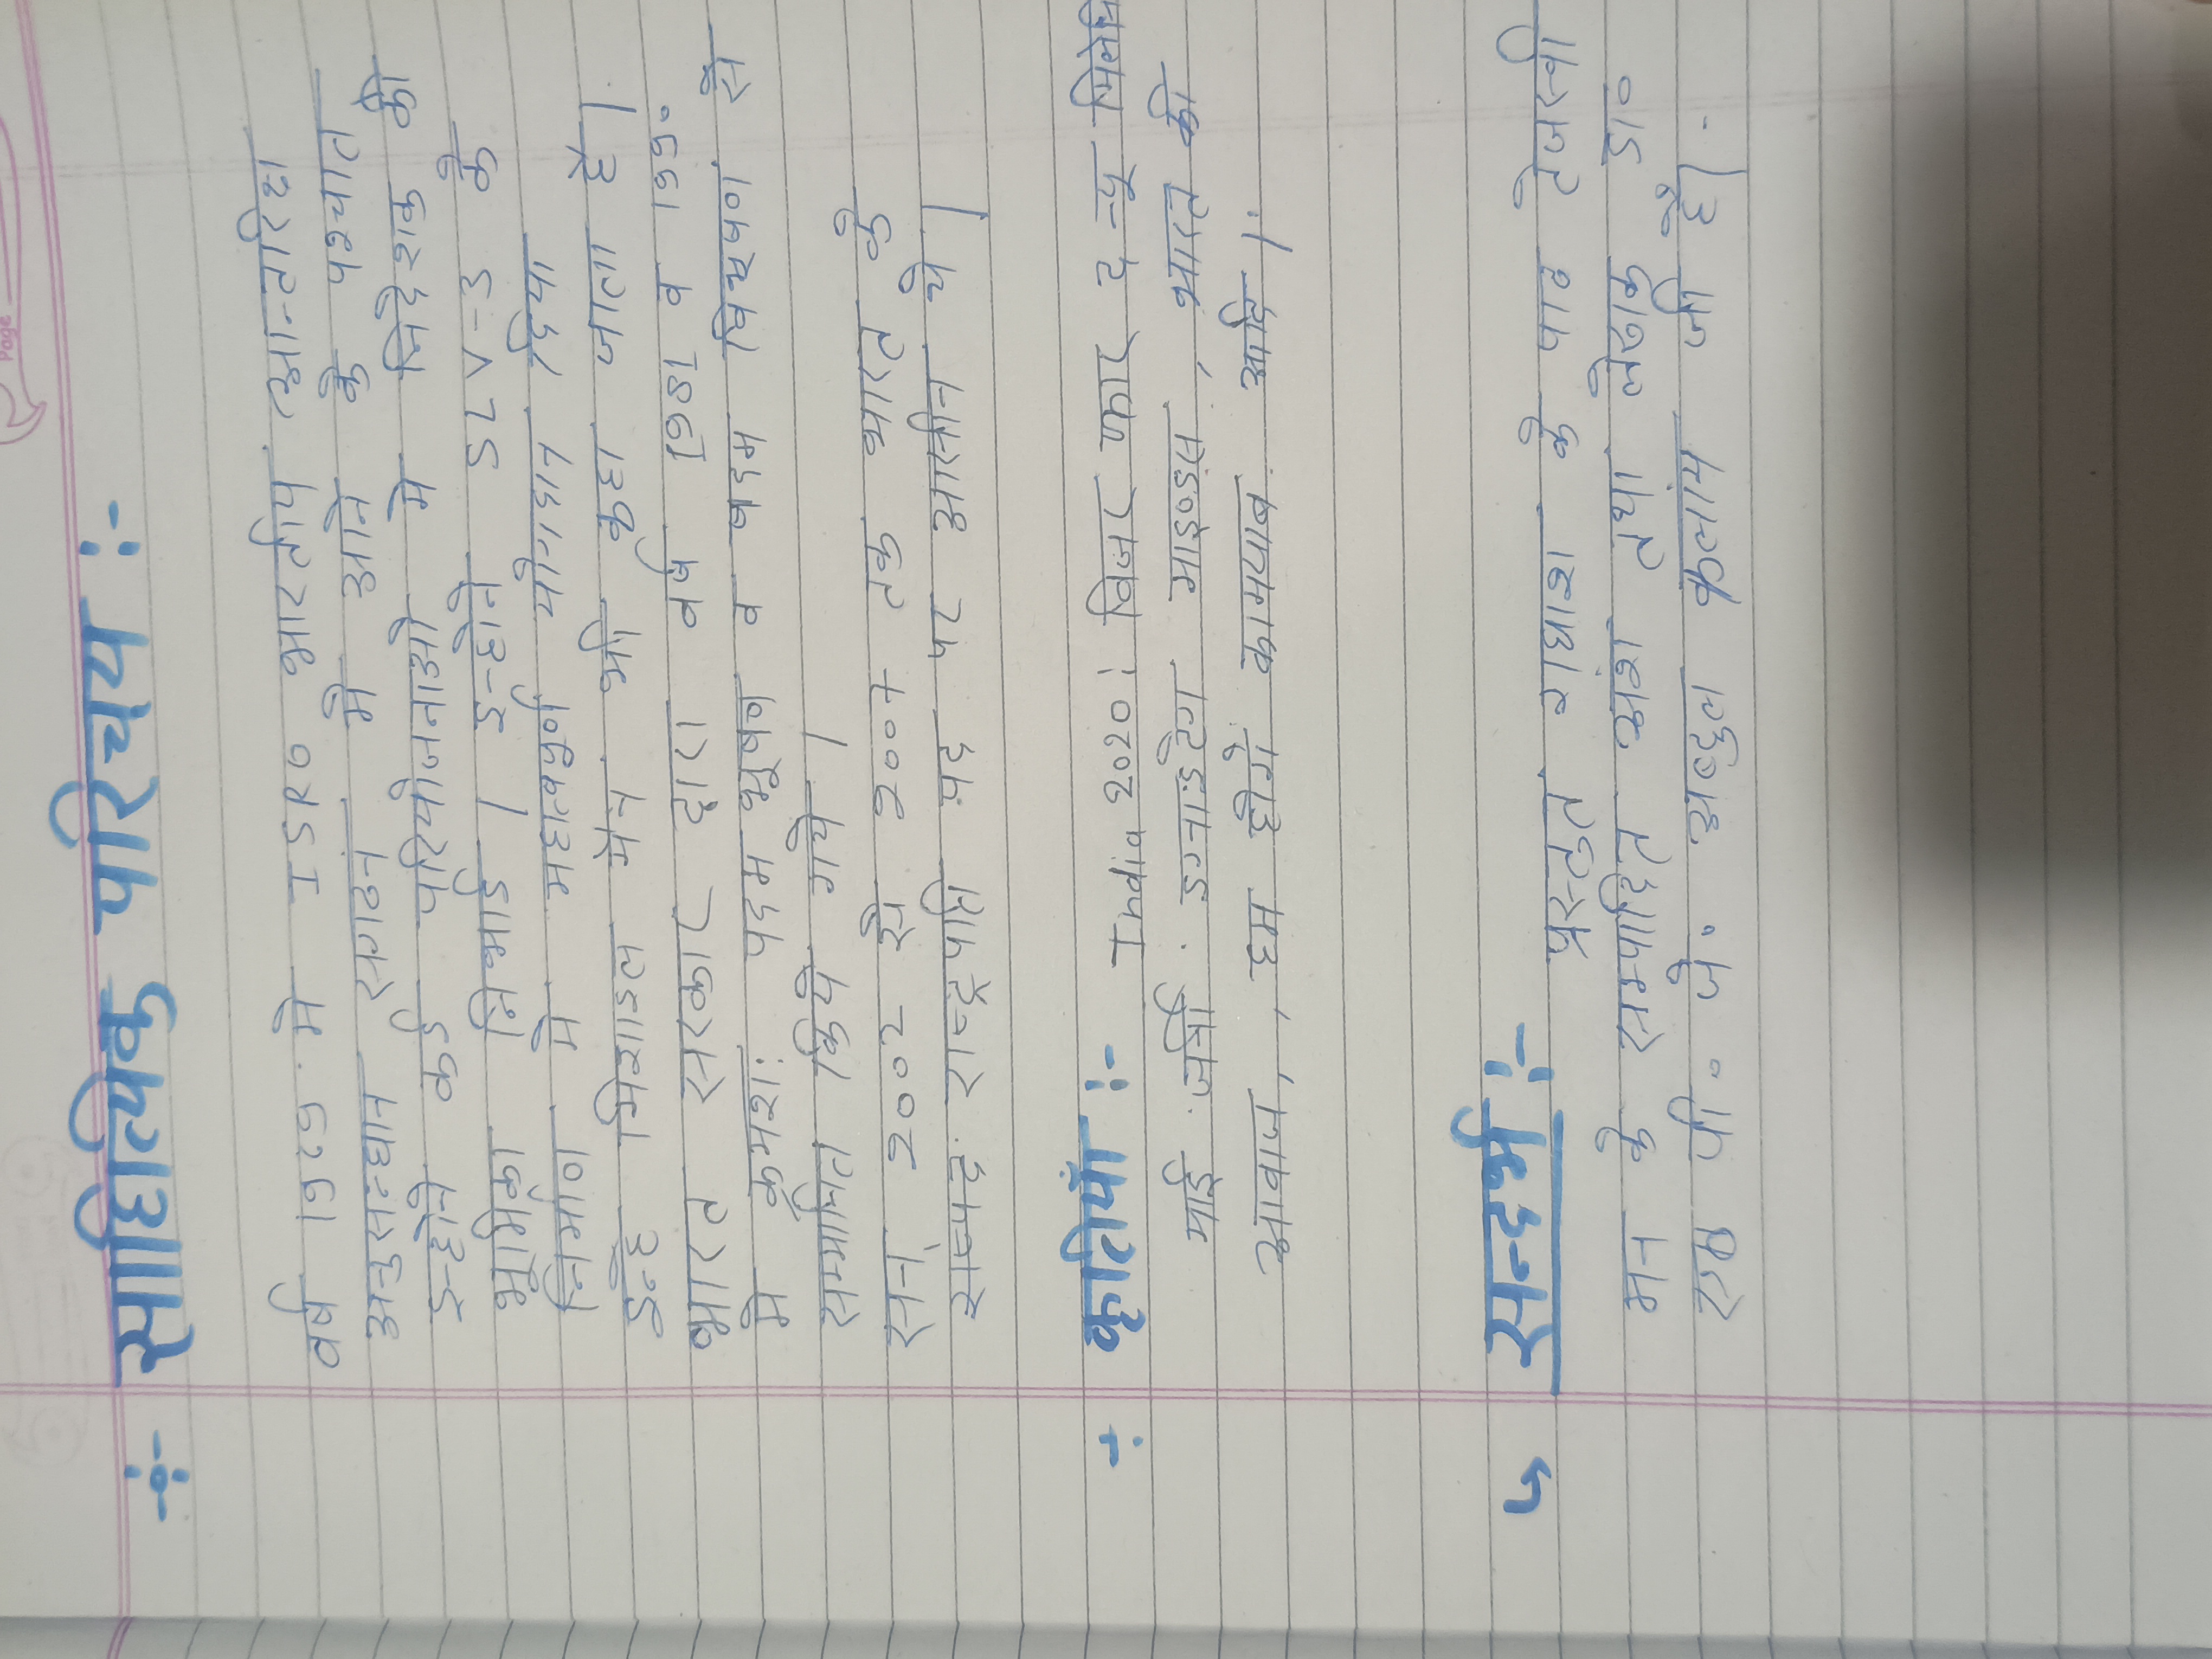 Page
साहित्यिक परिचय :-
वर्ष 1962 मे ISRO भारतीय अन्तरिक्ष
अनुसन्धान सगठन मे आने के पश्चात
इन्होने कई परियोजनाओ मे निदेशक की
भूमिका निभाई । इन्होने SLV-3 के
निर्माण मे महत्वपुर्ण योगदान दिया
इन्हे मिशाइल मेन भी कहा जाता है ।
भारत सरकार द्वारा वर्ष 1981 व 1990
मे क्रमशः पदम भूषण व पदम विभूषण से
सम्मानित किये गये ।
सन् 2002 से 2007 तक भारत के
सर्वोच्च राष्ट्रपति पद पर आसीन थे ।
कृतियाँ :- India 2020। विजन फार द न्यू
माई जर्नी . इग्नाइटेग माइण्डस , भारत की
आवाज , हम होगे कामयाब आदि ।
सन्दर्भ :- प्रस्तुत गद्यांश के पाठ तेजस्वी
मन के सम्पादित अंश तथा लेखक डा०
एoपीo जेo अब्दुल कलाम जी है।